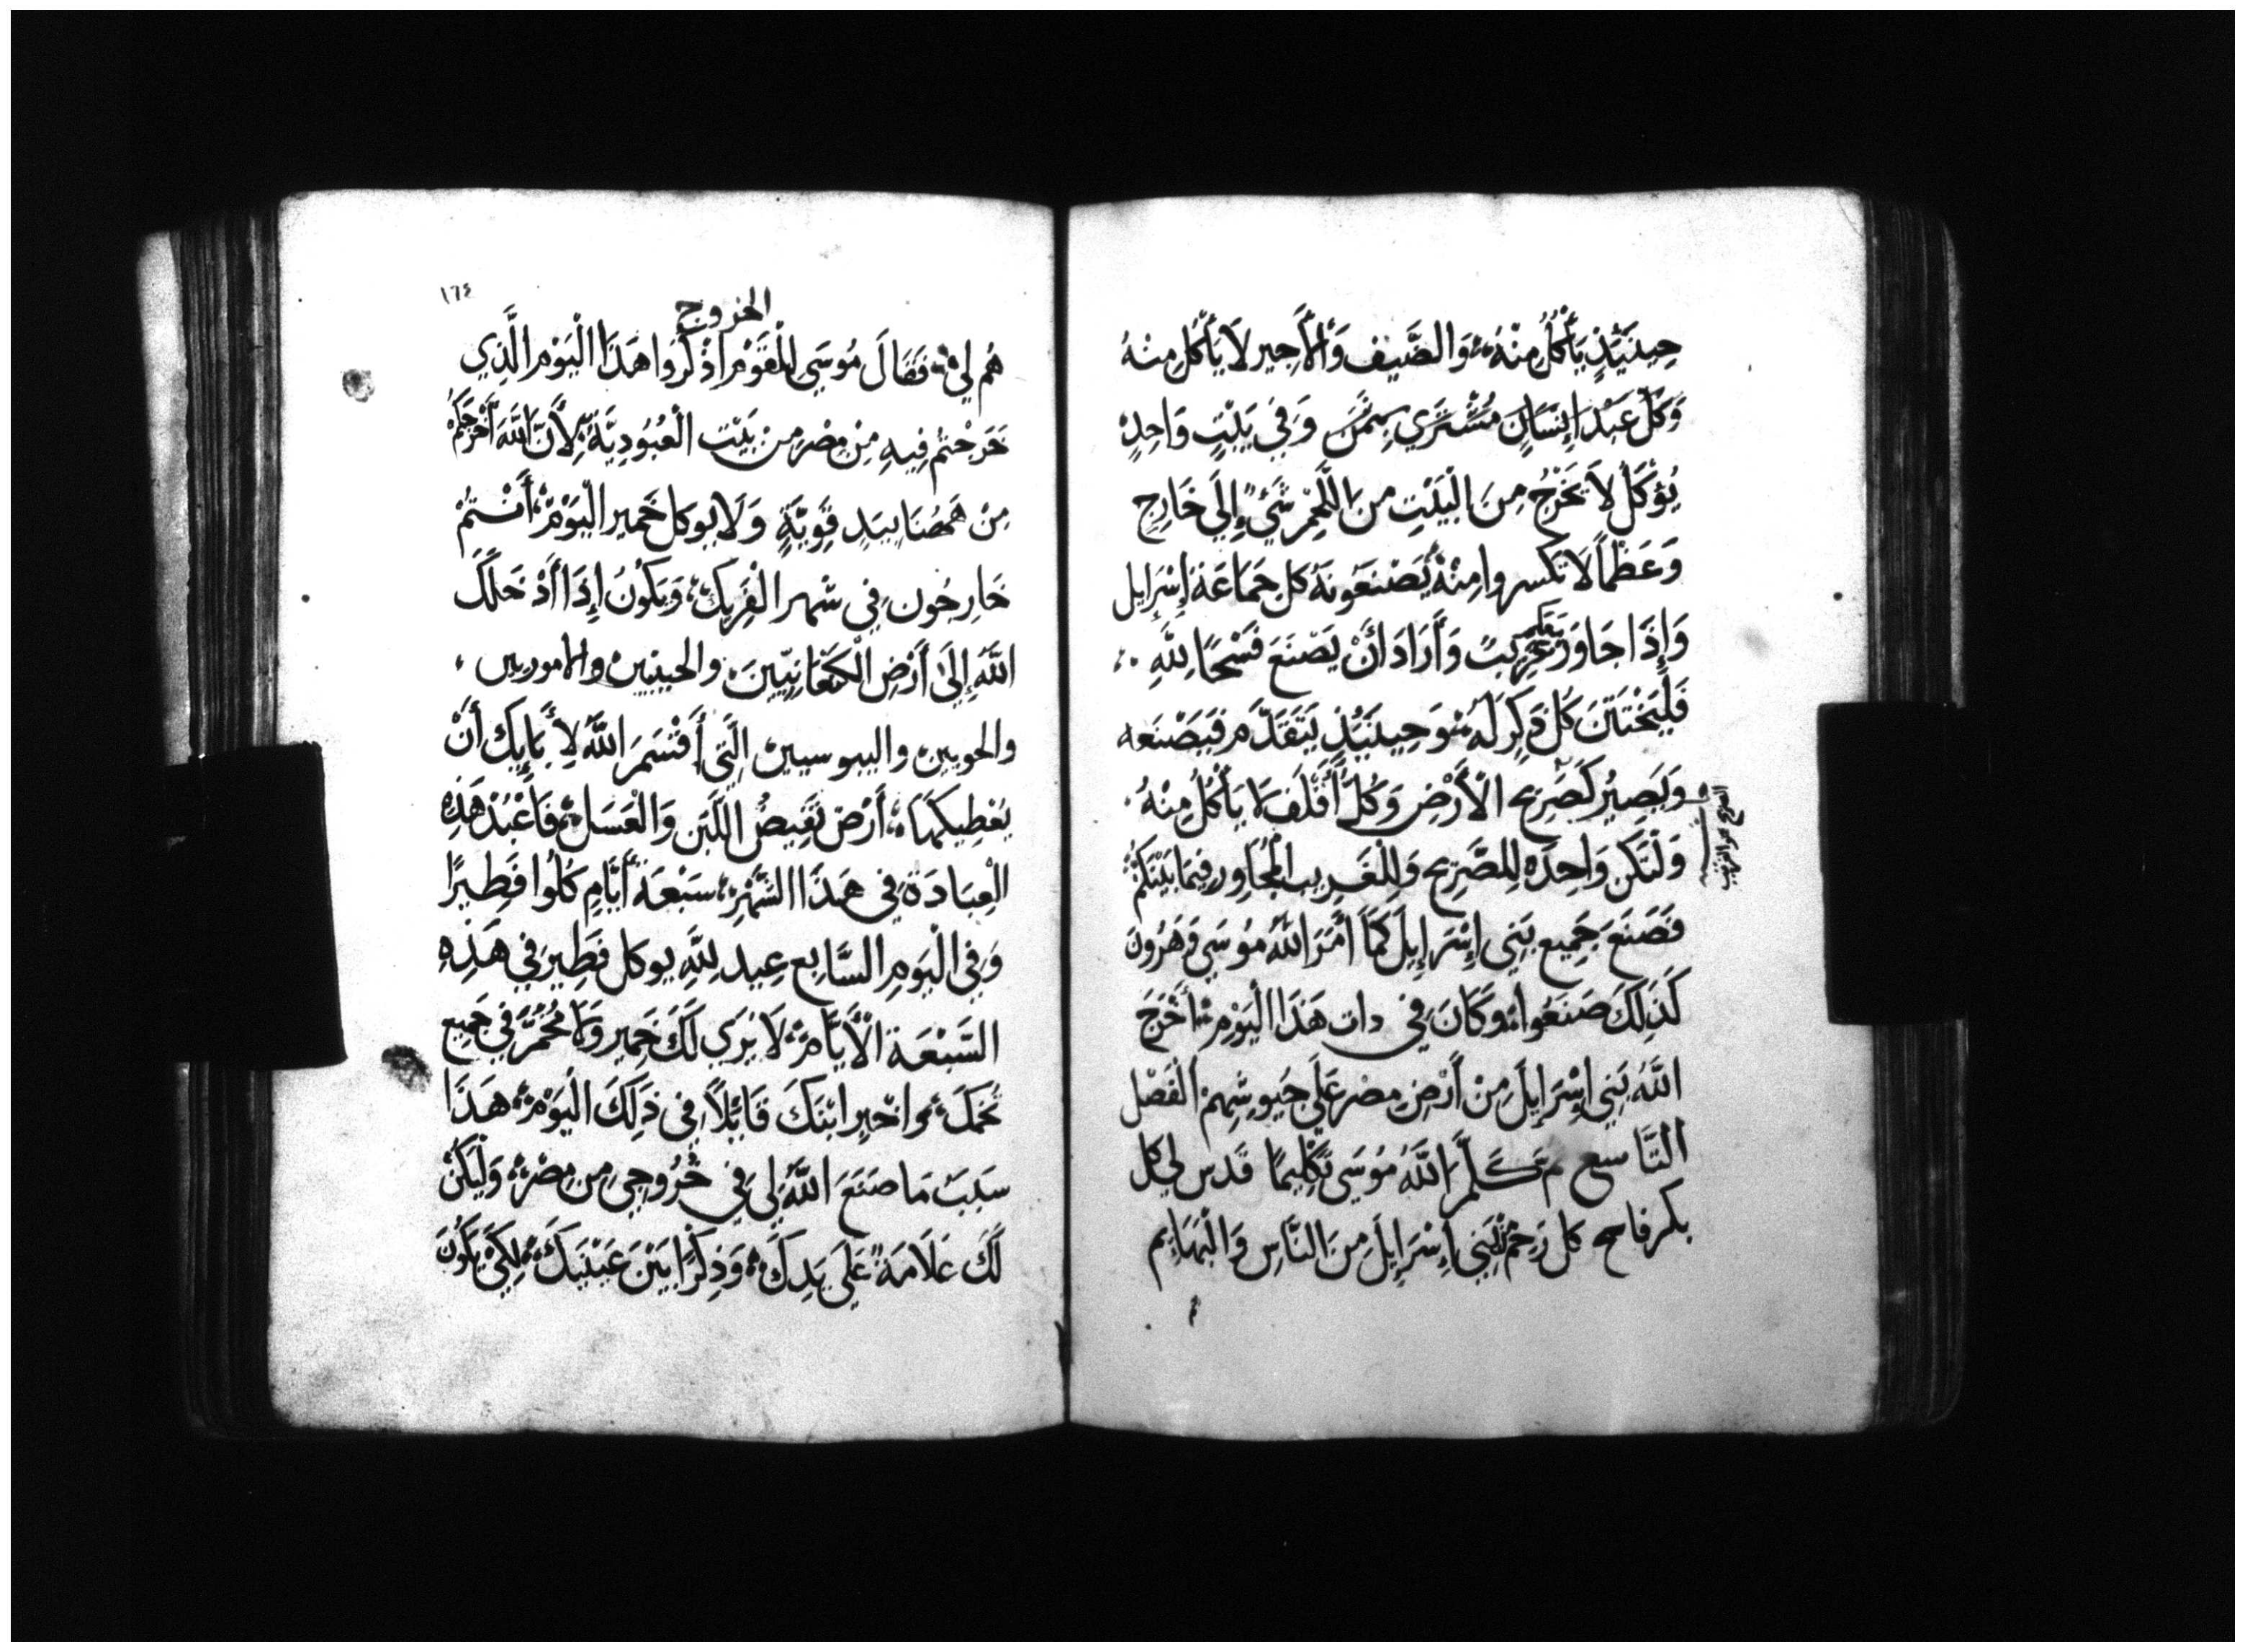 حِينَئِذٍ يَأْكُلُ مِنْهُ وَالضَّيف وَالْأَجير لَا يَأْكُل مِنْهُ
وَكُلّ عَبْد إِنسَانٍ مُشْتَرَي بِثَمَن وَفِي بَيْتٍ وَاحِدٍ
يُؤكَلْ لَا تَخْرُجْ مِنَ الْبَيْتِ مِن اللَّحْمِ شَيْءٌ إِلَي خَارِج
وَعَظْمًا لَا تكسروا مِنْهُ يَصْنَعُونَهُ كل جَمَاعَة إِسْرَايل
وَإِذَا جَاوَرَ مَعَكم غَرِيبٌ وَأَرَادَ أَنْ يَصْنَعَ فَسْحًا لِلَّهِ
فَلْيَخْتَتَنَ كُل ذَكِرٍ لَهُ وَحِينَئِذٍ يَتَقَدَّم فَيَصْنَعه
وَيَصِيْرُ كَصَرِيح الْأَرْضِ وَكُلّ أَقْلَف لَا يَأْكُلُ مِنْهُ
الصريح هو القريب
وَلْتَكن وَاحِدَه لِلصَّرِيح وَلِلْغَرِيب الْمُجَاوِر فِيمَا بَيْنَكُمْ
فَصَنَعَ جَمِيع بَنِي إِسْرَايِلَ كَمَا أَمَرَ اللَّهُ مُوسَي وَهَرُونَ
كَذَلِكَ صَنَعُوا وَكَانَ فِي دات هَذَا الْيَوْم أَخْرَجَ
اللَّهُ بَنِي إِسْرَايِلَ مِنْ أَرْضِ مِصْر عَلَي جِيوشِهِمْ الْفَصْل
التَّاسِع ثم كَلَّمَ اللَّهُ مُوسَي تَكْلِيمًا قَدس لِي كل
بكر فاتح كل رَحِمْ لبَنِي إِسْرَايِلَ مِنَ النَّاسِ وَالْبَهَايم
١٦٤
الخروج
هُم لِي فَقَالَ مُوسَي لِلْقَوْم اذْكُرُوا هَذَا الْيَوْم الَّذِي
خَرَجْتُمْ فِيهِ مِنْ مِصْر مِن بَيْت الْعُبُودِيَّة لِأَنَّ اللَّهَ أَخْرَجَكُمْ
مِنْ هَهُنَا بِيَدٍ قَوِيَّةٍ وَلَا يوكل خَمير الْيَوْم أَنْتُمْ
خَارِجُون فِي شهر الْفَرِيك وَيَكُونُ إِذَا أَدْخَلَكَ
اللَّهُ إِلَى أَرْضِ الْكَنْعَانِيِّينَ والحيثيين والاموريين
والحويين واليبوسيين الَّتِي أَقْسَمَ اللَّهُ لِأَبَايِكَ أَنْ
يُعْطِيكَهَا أَرْض تَفِيضُ اللَّبَن وَالْعَسَل فَاعْبُدْ هَذِهِ
الْعِبَادَة فِي هَذَا الشَّهْرِ سَبْعَة أَيَّامٍ كُلُوا فَطِيرًا
وَفِي الْيَوْمِ السَّابِع عِيد لِلَّهِ يوكل فَطِير فِي هَذِهِ
السَّبْعَة الْأَيَّام لَا يَرَي لَكَ خَمِير وَلَا مُخْمَّر فِي جَمِيع
تخمكَ واخبر ابْنَكَ قَايلًا فِي ذَلِكَ الْيَوْم هَذَا
سَبَبَ مَا صَنَعَ اللَّهُ لِي فِي خُرُوجِي مِن مِصْر وَلْيَكُنْ
لَكَ عَلَامَةً عَلَي يَدِكَ وَذِكْرًا بَيْنَ عَيْنَيكَ لِكَيْ يَكُونَ